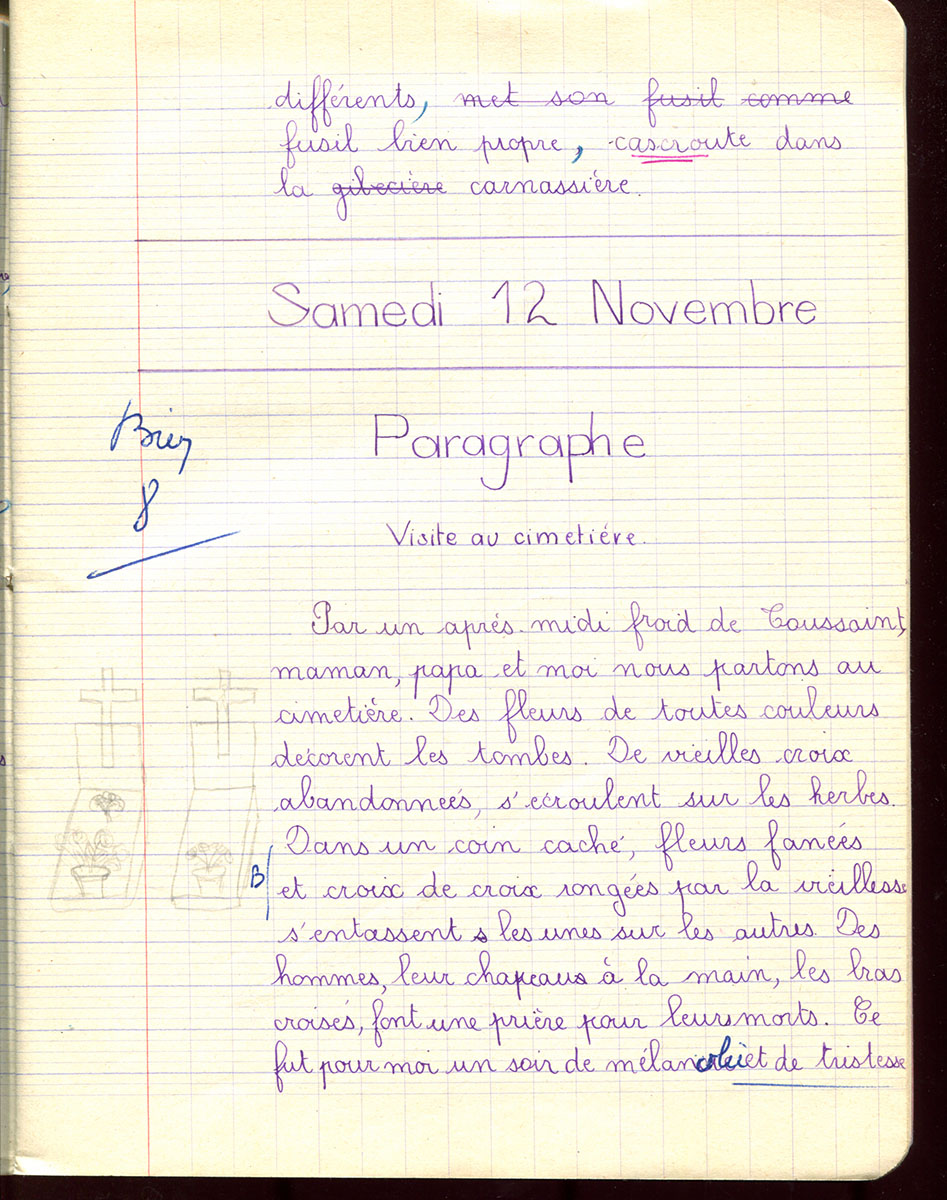 différents, met son fusil comme
fusil bien propre, cascroute dans
la gibecière carnassière.
Samedi 12 Novembre
Bien
8
Paragraphe
Visite au cimetiére.
Par un aprés-midi froid de Toussaint,
maman, papa et moi nous partons au
cimetière. Des fleurs de toutes couleurs
décorent les tombes. De vieilles croix
abandonnées, s'écroulent sur les herbes.
Dans un coin caché, fleurs fanées
B
et croix de croix rongées par la vieillesse
s'entassent les unes sur les autres. Des
hommes, leur chapeaus à la main, les bras
croisés, font une prière pour leurs morts. Ce
fut pour moi un soir de mélancolie et de tristesse